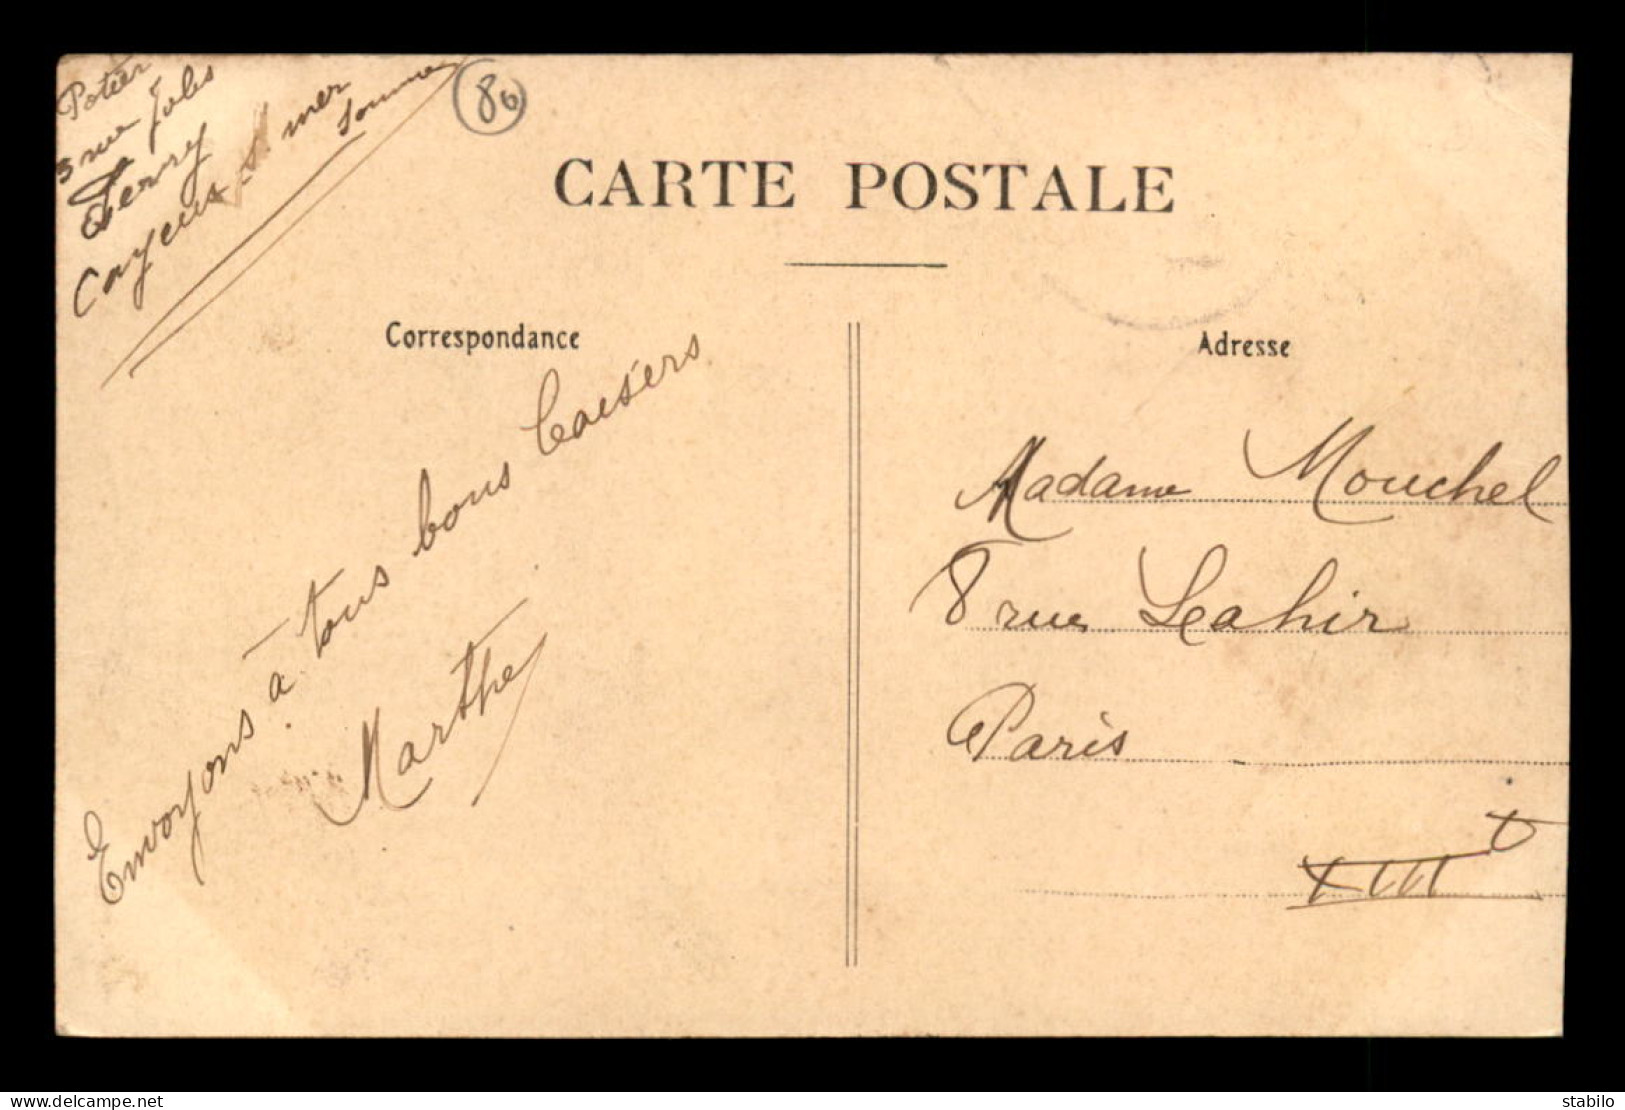 Potier
3 rue Jules
Ferry
Cayeux s/ mer
Somme
80
CARTE POSTALE
Correspondance
Adresse
Envoyons à tous bons baisers
Marthe
Madame Mouchel
8 rue Leahir
Paris
XIII t
www.delcampe.net
stabilo